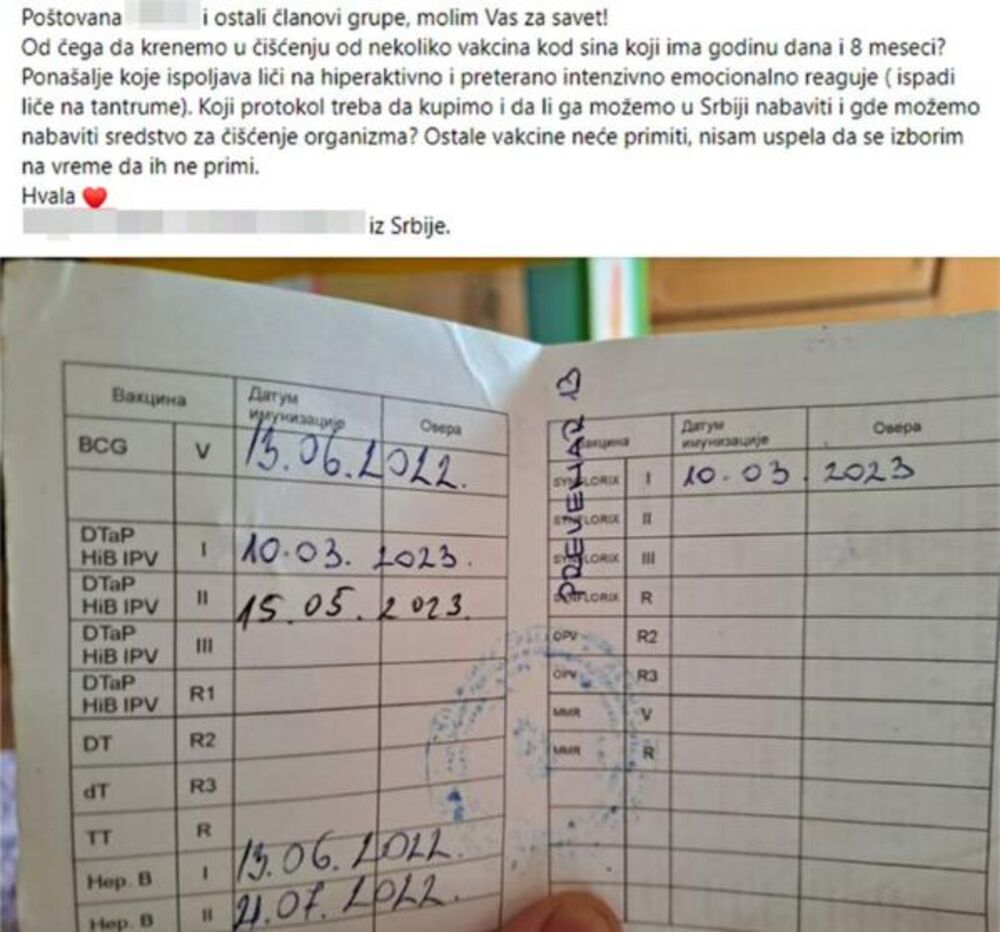 Poštovana i ostali članovi grupe, molim Vas za savet!
Od čega da krenemo u čišćenju od nekoliko vakcina kod sina koji ima godinu dana i 8 meseci?
Ponašalje koje ispoljava liči na hiperaktivno i preterano intenzivno emocionalno reaguje ( ispadi
liče na tantrume). Koji protokol treba da kupimo i da li ga možemo u Srbiji nabaviti i gde možemo
nabaviti sredstvo za čišćenje organizma? Ostale vakcine neće primiti, nisam uspela da se izborim
na vreme da ih ne primi.
Hvala ❤️
iz Srbije.
Вакцина Датум имунизације Овера
BCG V 13.06.2022.
DTaP HiB IPV I 10.03.2023.
DTaP HiB IPV II 15.05.2023.
DTaP HiB IPV III
DTaP HiB IPV R1
DT R2
dT R3
TT R
Hep. B I 13.06.2022.
Hep. B II 21.07.2022.
PREVEHAR 13
Вакцина Датум имунизације Овера
SYNFLORIX I 10.03.2023
SYNFLORIX II
SYNFLORIX III
SYNFLORIX R
OPV R2
OPV R3
MMR V
MMR R